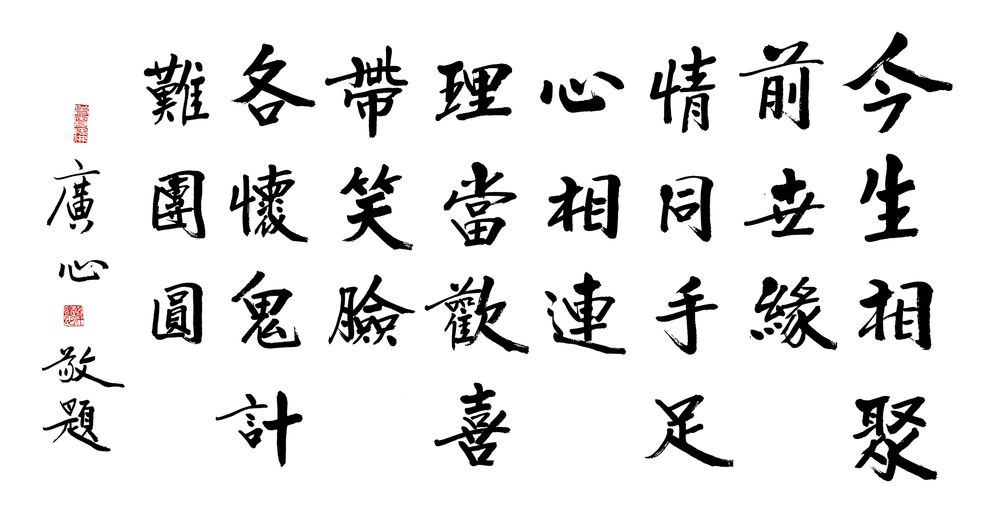 今生相聚
前世緣
情同手足
心相連
理當歡喜
帶笑臉
各懷鬼計
難團圓
廣心敬題